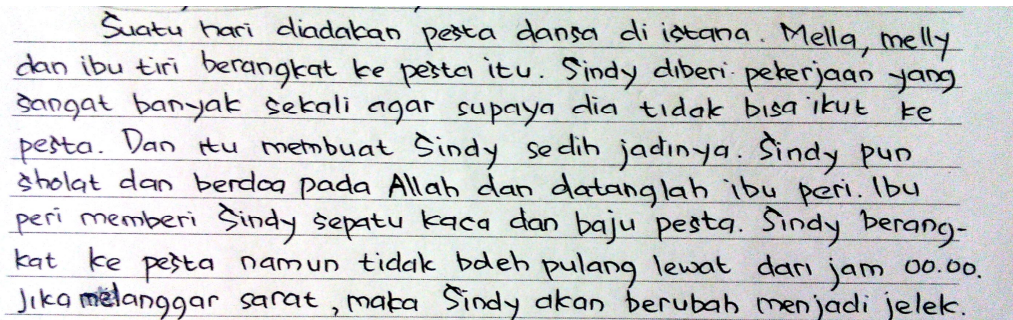 Suatu hari diadakan pesta dansa di istana. Mella, melly
dan ibu tiri berangkat ke pesta itu. Sindy diberi pekerjaan yang
sangat banyak sekali agar supaya dia tidak bisa ikut ke
pesta. Dan itu membuat Sindy sedih jadinya. Sindy pun
sholat dan berdoa pada Allah dan datanglah ibu peri. Ibu
peri memberi Sindy sepatu kaca dan baju pesta. Sindy berang-
kat ke pesta namun tidak boleh pulang lewat dari jam 00.00.
Jika melanggar sarat, maka Sindy akan berubah menjadi jelek.